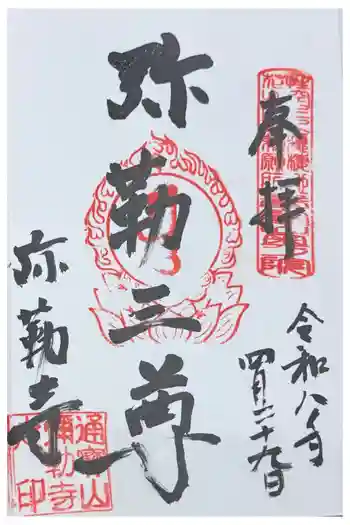 奉拝
令和八年
四月二十九日
弥勒三尊
弥勒寺
通寳山
彌勒寺
之印